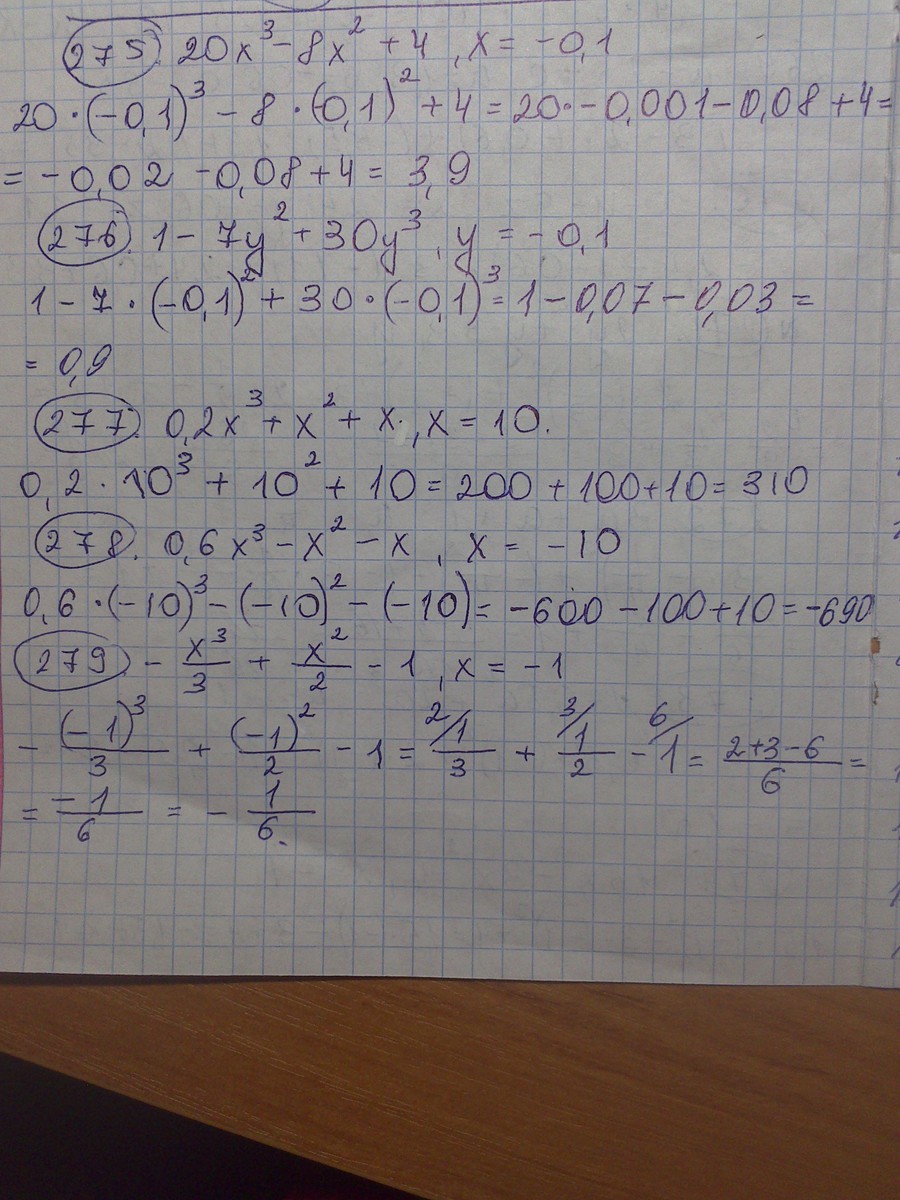 275. 20x³ - 8x² + 4 , x = -0,1
20 · (-0,1)³ - 8 · (-0,1)² + 4 = 20 · -0,001 - 0,08 + 4 =
= -0,02 - 0,08 + 4 = 3,9
276. 1 - 7y² + 30y³ , y = -0,1
1 - 7 · (-0,1)² + 30 · (-0,1)³ = 1 - 0,07 - 0,03 =
= 0,9
277. 0,2x³ + x² + x. , x = 10.
0,2 · 10³ + 10² + 10 = 200 + 100 + 10 = 310
278. 0,6x³ - x² - x , x = -10
0,6 · (-10)³ - (-10)² - (-10) = -600 - 100 + 10 = -690
279. - x³/3 + x²/2 - 1 , x = -1
- (-1)³/3 + (-1)²/2 - 1 = ²⁄1/3 + ³⁄1/2 - ⁶⁄1 = 2+3-6/6 =
= -1/6 = - 1/6.